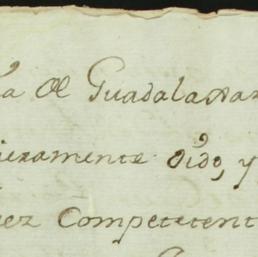 a de Guadalaxar
ieramente oido, y
uez Competetent